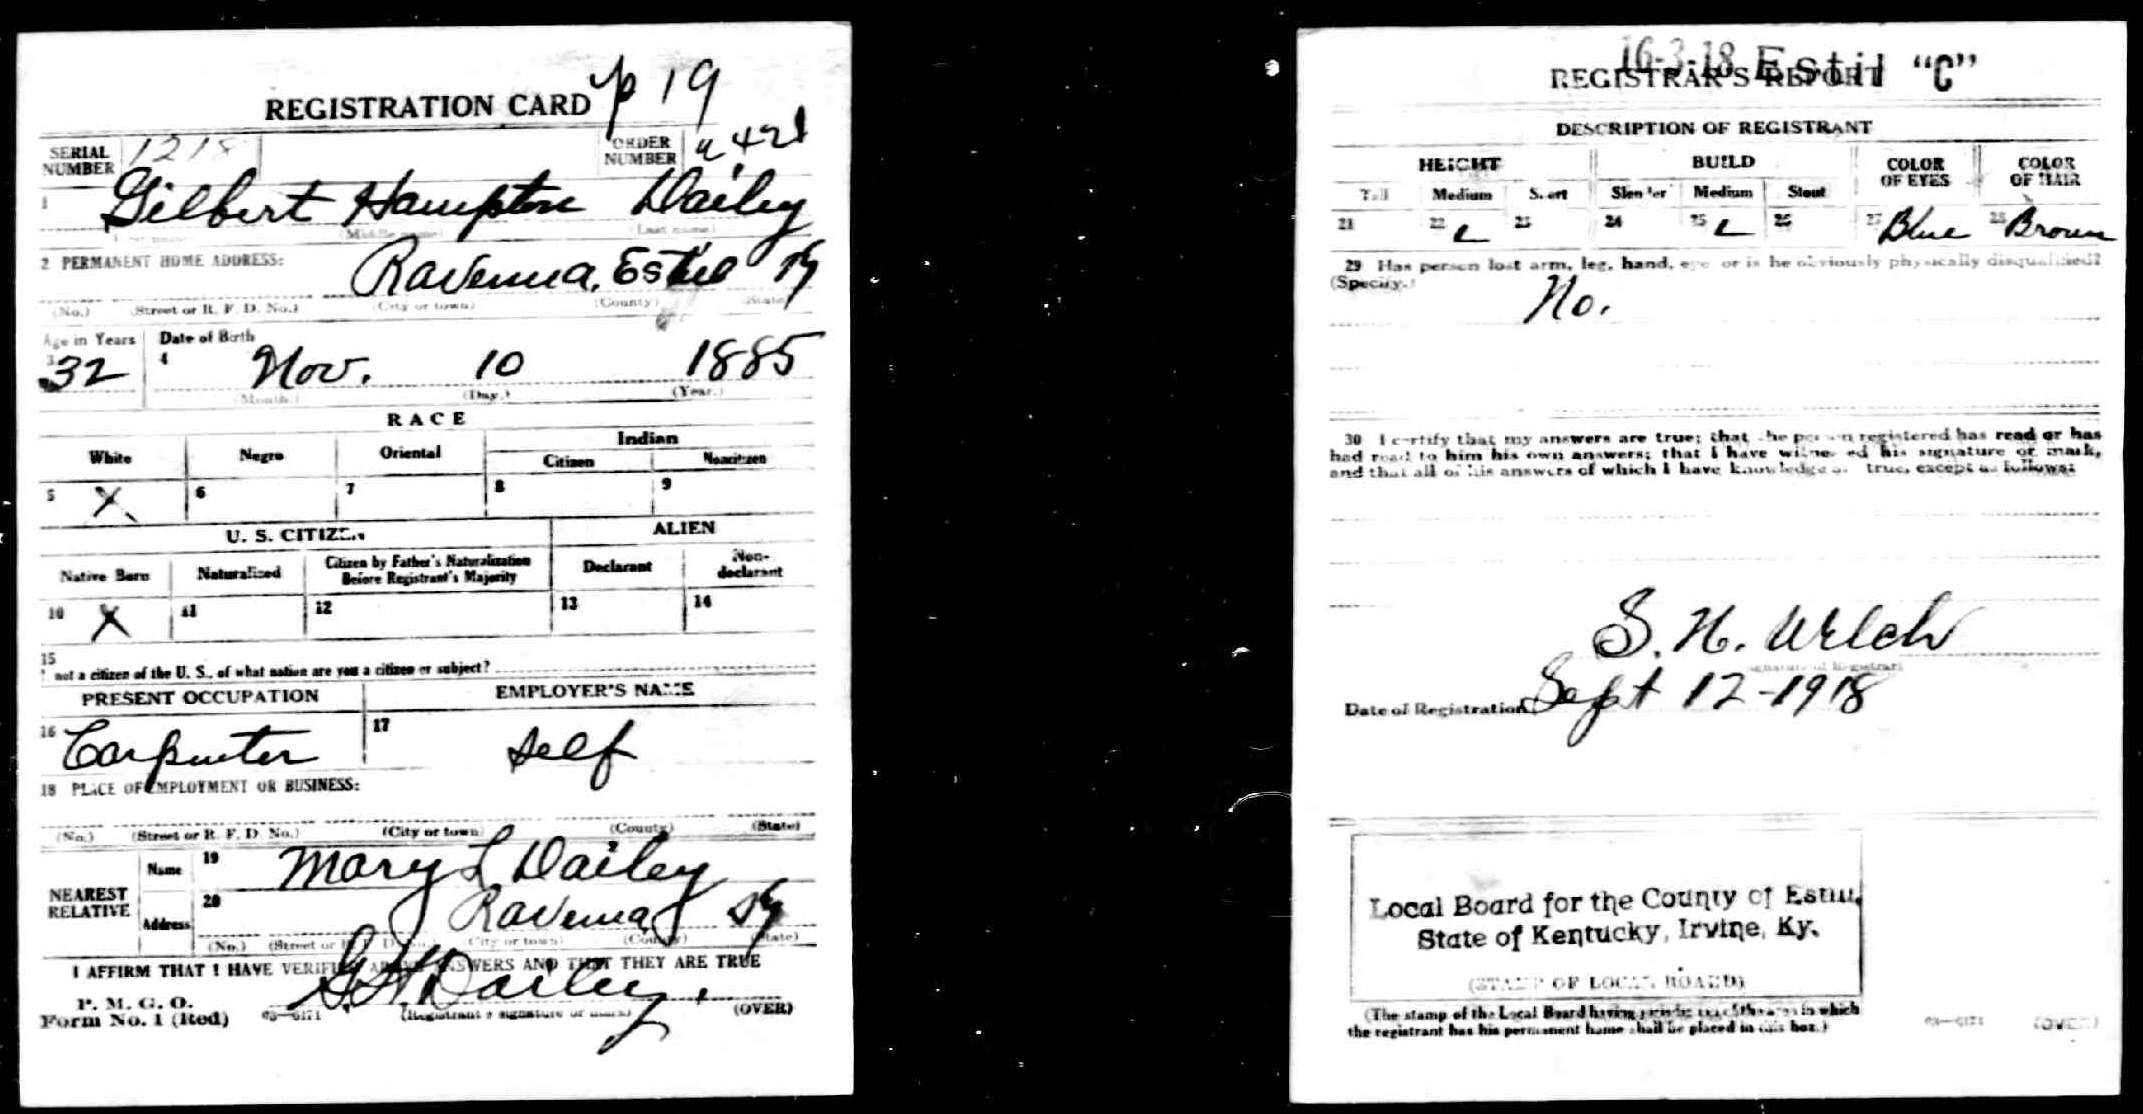 REGISTRATION CARD p 19
SERIAL NUMBER 1218 ORDER NUMBER
1 Gilbert Hampton Dailey
(Middle name) (Last name)
2 PERMANENT HOME ADDRESS: Ravenna, Estill Ky
(No.) (Street or R. F. D. No.) (City or town) (County) (State)
Age in Years Date of Birth
3 32 4 Nov. 10 1885
(Month.) (Day.) (Year.)
RACE
White Negro Oriental Indian
Citizen Noncitizen
5 X 6 7 8 9
U. S. CITIZEN ALIEN
Native Born Naturalized Citizen by Father's Naturalization Before Registrant's Majority Declarant Non-declarant
10 X 11 12 13 14
15
not a citizen of the U. S., of what nation are you a citizen or subject?
PRESENT OCCUPATION EMPLOYER'S NAME
16 Carpenter 17 self
18 PLACE OF EMPLOYMENT OR BUSINESS:
(No.) (Street or R. F. D. No.) (City or town) (County) (State)
NEAREST RELATIVE Name 19 Mary L Dailey
Address 20 Ravenna Ky
(No.) (Street or R. F. D. No.) (City or town) (County) (State)
I AFFIRM THAT I HAVE VERIFIED ABOVE ANSWERS AND THAT THEY ARE TRUE
P. M. G. O.
Form No. 1 (Red) 03—6171 G H Dailey. (OVER)
(Registrant's signature or mark)
16-3-18 Estil "C"
REGISTRAR'S REPORT
DESCRIPTION OF REGISTRANT
HEIGHT BUILD COLOR OF EYES COLOR OF HAIR
Tall Medium Short Slender Medium Stout
21 22 23 24 25 26 27 Blue 28 Brown
29 Has person lost arm, leg, hand, eye or is he obviously physically disqualified?
(Specify.) No.
30 I certify that my answers are true; that the person registered has read or has
had read to him his own answers; that I have witnessed his signature or mark,
and that all of his answers of which I have knowledge are true, except as follows:
S. N. Welch
(Signature of Registrar)
Date of Registration Sept 12-1918
Local Board for the County of Estill,
State of Kentucky, Irvine, Ky.
(STAMP OF LOCAL BOARD)
(The stamp of the Local Board having jurisdiction of the area in which
the registrant has his permanent home shall be placed in this box.)
03—6171 (OVER)